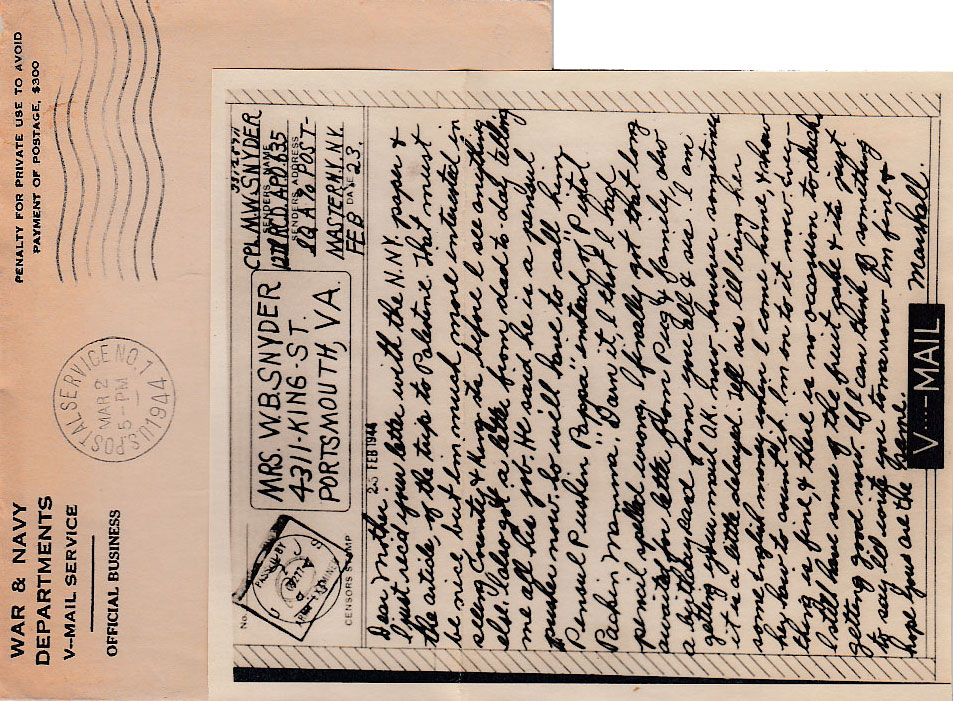 WAR & NAVY
DEPARTMENTS
V--MAIL SERVICE
OFFICIAL BUSINESS
U.S. POSTAL SERVICE NO. 1
MAR 2
5-PM
1944
PENALTY FOR PRIVATE USE TO AVOID
PAYMENT OF POSTAGE, $300
No.
CENSOR'S STAMP
MRS. W.B. SNYDER
4311-KING-ST.
PORTSMOUTH, VA.
CPL. M.W. SNYDER
SENDER'S NAME
SENDER'S ADDRESS
SQ A % POST-
MASTER N.Y. N.Y.
FEB 23
DATE
23 FEB 1944
Dear Mother.
I just rec'd your letter with the N.N.Y. paper &
the article, of the trip to Palestine. That must
be nice but I'm much more interested in
seeing County & King sts before I see anything
else. I also got a letter from dad to-day telling
me all his job. He said he is a pensul
pusher now. So will have to call him
Pensul Pushen Pappa "instead of "Pistol
Packin Mamma". Darn it, I think I have
pencil spelled wrong. I finally got that long
awaited for letter from Pug & family, also
a birthday card from you all I see. I am
getting your mail O.K. now, however sometimes
it is a little delayed. Tell sis I'll bring her
some English money when I come home, & show
her how to count it. I'm on to it now. Every-
thing is fine, & there is no occasion to
I still have some of the fruit cake & it's just
getting good now. Well I can think of something
to say I'll write you tomorrow. I'm fine &
hope you are the same.
Marshall.
V···—MAIL